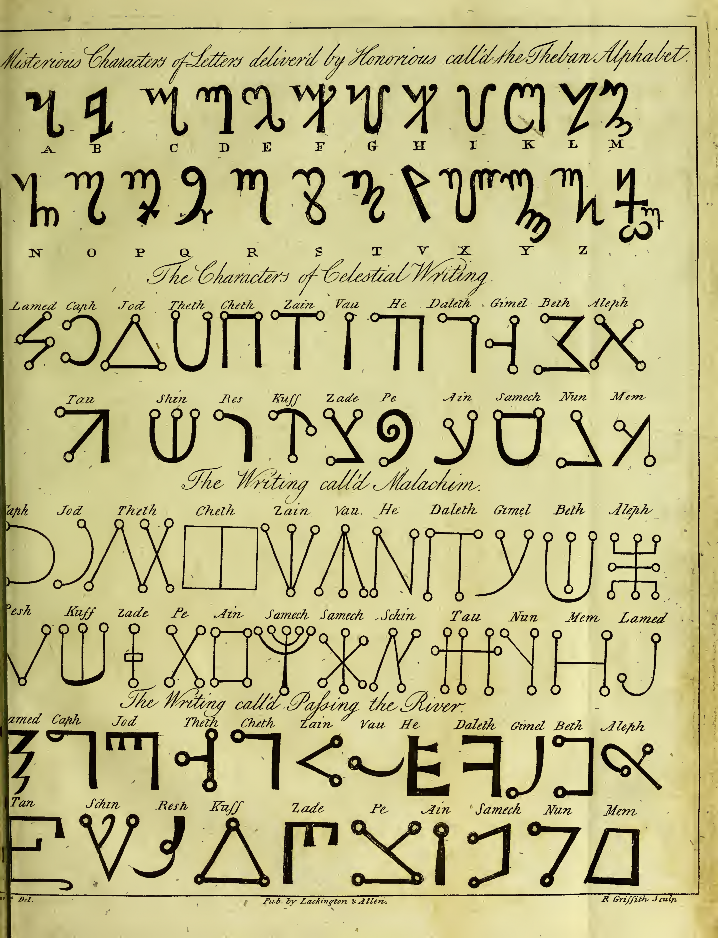 Misterious Characters of Letters deliver'd by Honorious call'd the Theban Alphabet.
A B C D E F G H I K L M
N O P Q R S T V X Y Z
The Characters of Celestial Writing.
Lamed Caph Jod Theth Cheth Zain Vau He Daleth Gimel Beth Aleph
Tau Shin Res Kuff Zade Pe Ain Samech Nun Mem
The Writing call'd Malachim.
aph Jod Theth Cheth Zain Vau. He Daleth Gimel Beth Aleph
esh Kuff Zade Pe Ain Samech Samech Schin Tau Nun Mem Lamed
The Writing call'd Paſsing the River.
amed Caph Jod Theth Cheth Zain Vau He Daleth Gimel Beth Aleph
Tau Schin Resh Kuff Zade Pe Ain Samech Nun Mem
Del. Pub. by Lackington & Allen. R Griffith Sculp